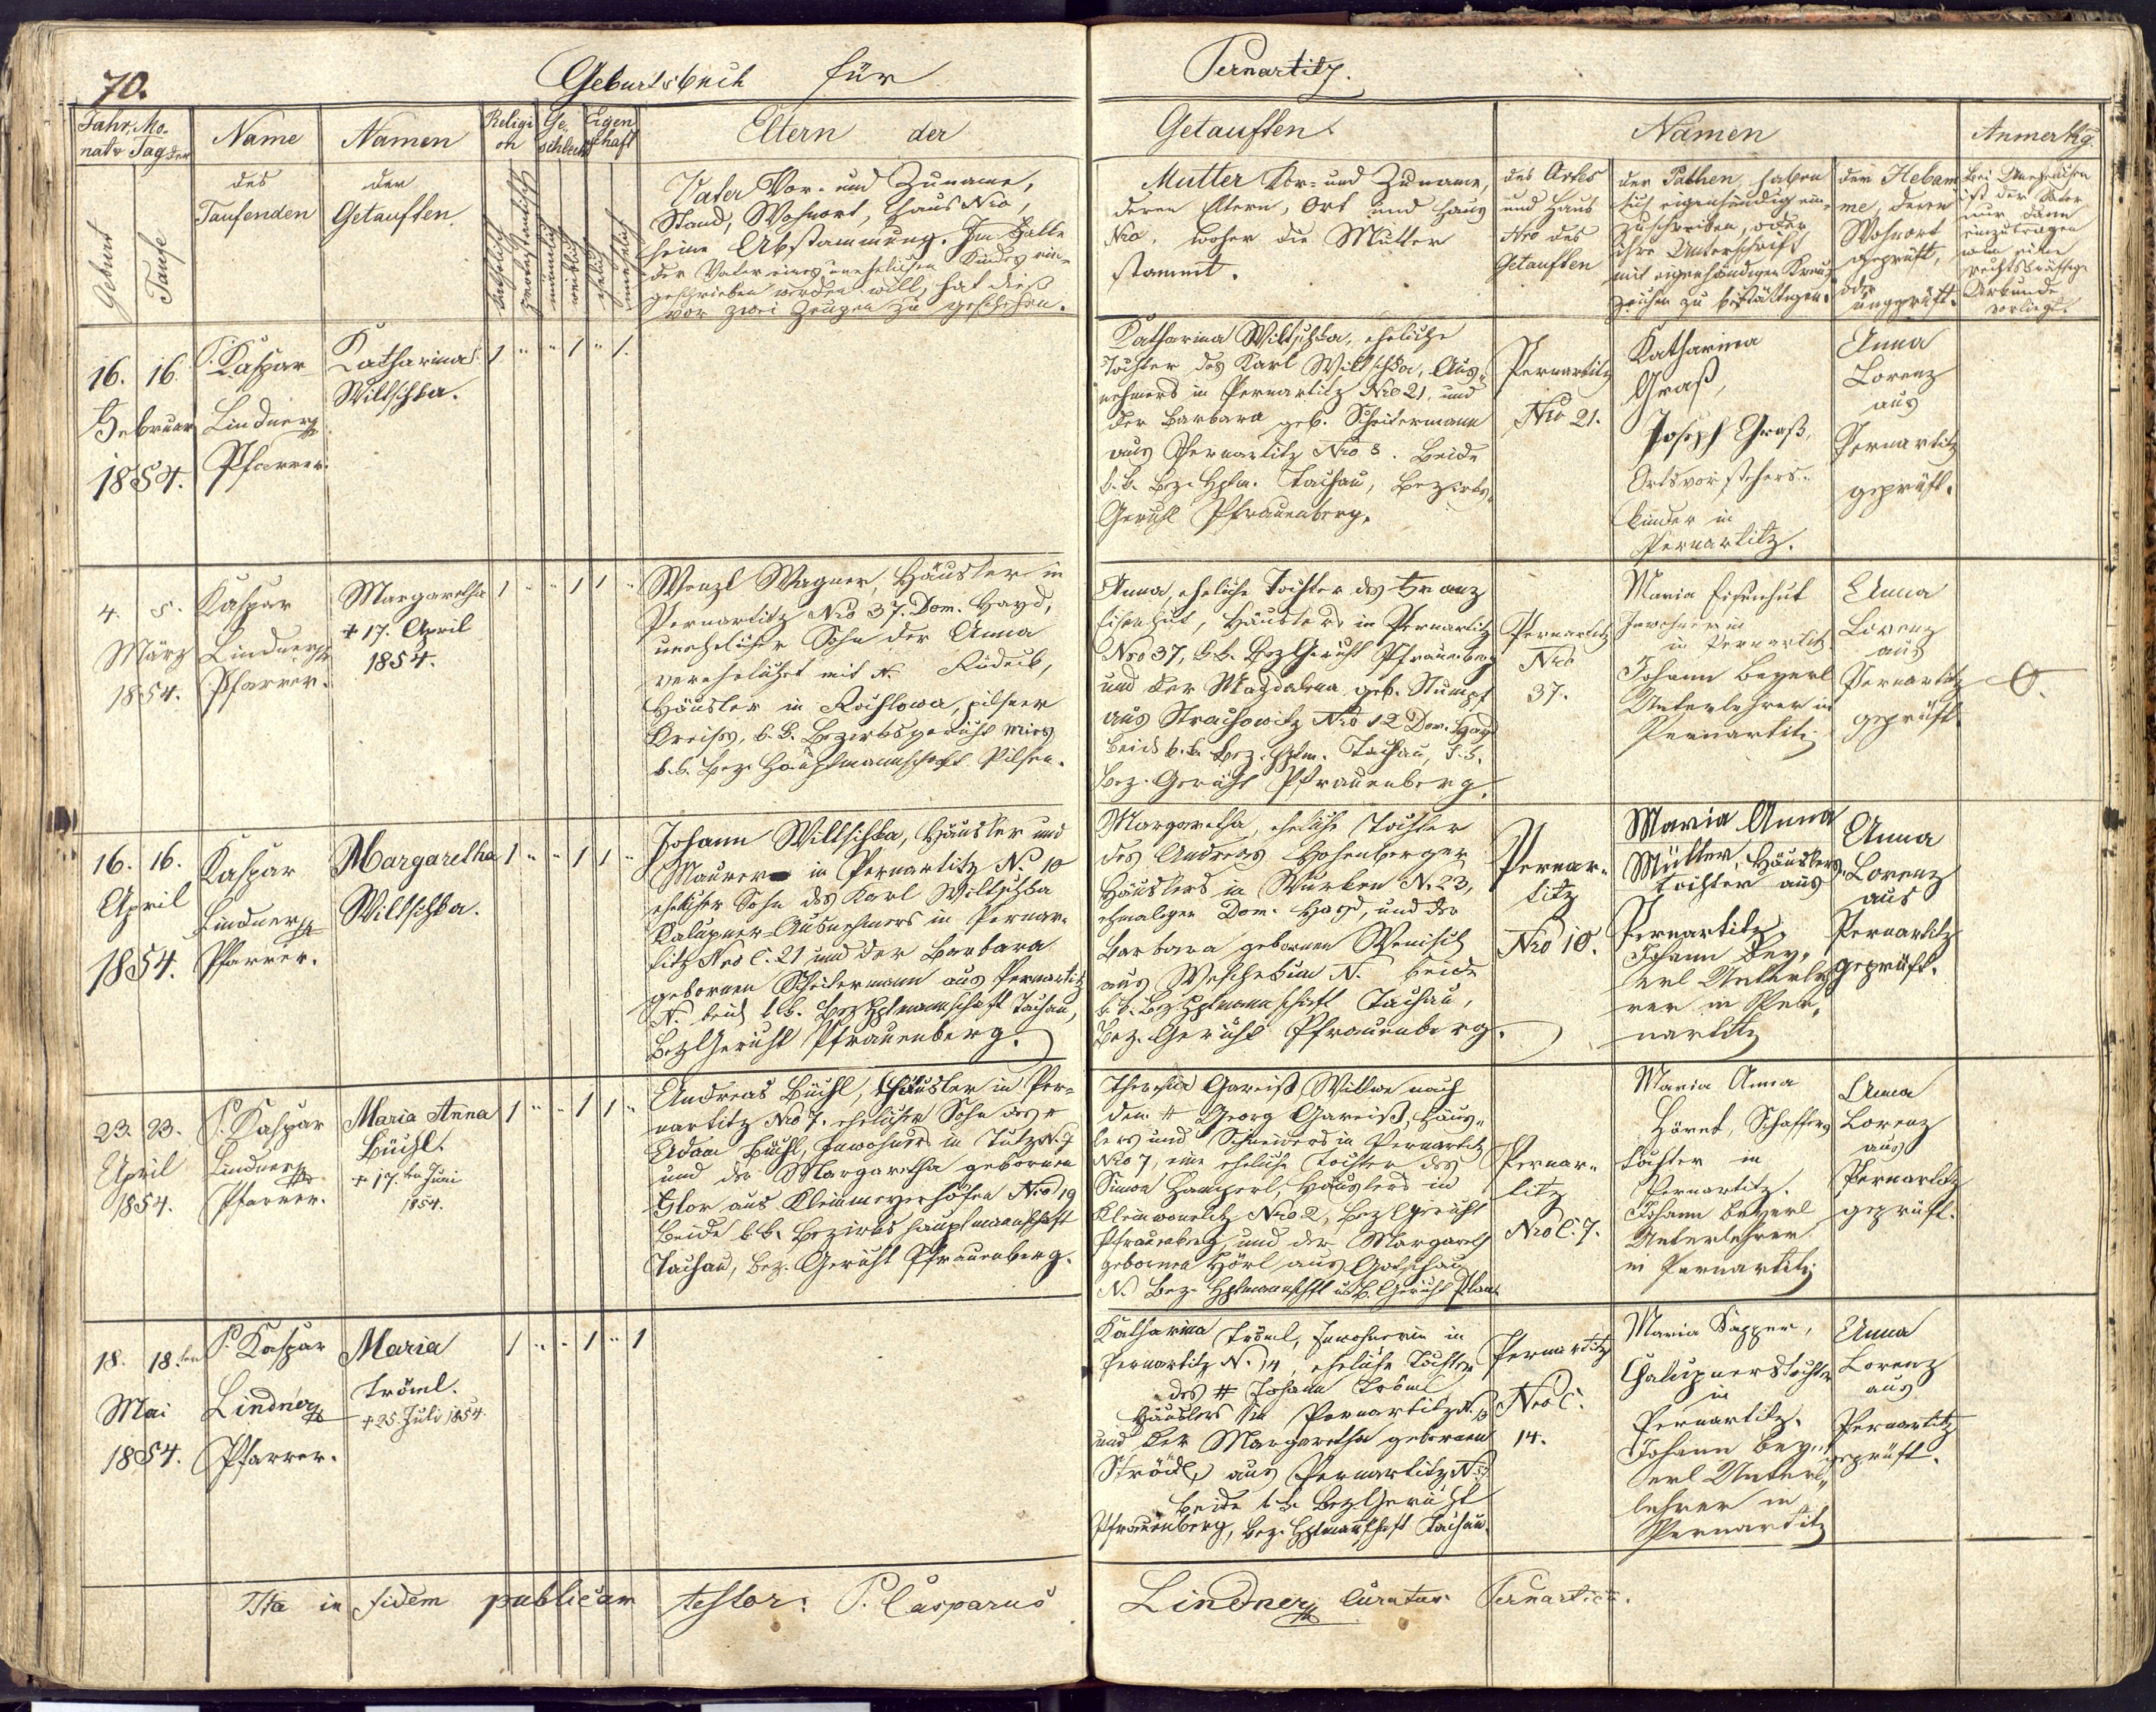 70.
Geburtsbuch für
Pernartitz.
Jahr, Mo-
nat u Tag der
Geburt
Taufe
Name
des
Taufenden
Namen
der
Getauften
Religi
on
katholisch
protestantisch
Ge-
schlecht
männlich
weiblich
Eigen
schaft
ehelich
unehelich
Eltern der
Getauften
Vater Vor- und Zuname,
Stand, Wohnort, Haus Nro,
seine Abstammung. Im Falle
der Vater eines unehelichen Kindes ein-
geschrieben werden will, hat dieß
vor zwei Zeugen zu geschehen.
Mutter Vor- und Zuname,
deren Eltern, Ort und Haus
Nro, woher die Mutter
stammt.
des Ortes
und Haus
Nro des
Getauften
Namen
der Pathen, haben
sich eigenhändig ein-
zuschreiben, oder
ihre Unterschrift
mit eigenhändigen Kreuz
zeichen zu bestättigen.
der Hebam
me, deren
Wohnort
geprüft,
oder
ungeprüft.
Anmerkg.
bei Unehelichen
ist der Vater
nur dann
einzutragen
wenn eine
rechtskräftige
Urkunde
vorliegt.
16. 16.
Februar
1854.
P. Kaspar
Lindner
Pfarrer.
Katharina
Wiltschka.
1 " " 1 " 1.
Katharina Wiltschka, eheliche
Tochter des Karl Wiltschka, Aus-
nehmers in Pernartitz Nro 21, und
der Barbara geb. Scheitermann
aus Pernartitz Nro 3. Beide
k.k. Bez. Hptm. Tachau, Bezirks-
Gericht Pfrauenberg.
Pernartitz
Nro 21.
Katharina
Graß,
Joseph Graß,
Ortsvorstehers-
kinder in
Pernartitz.
Anna
Lorenz
aus
Pernartitz
geprüft.
4. 5.
März
1854.
Kaspar
Lindner
Pfarrer.
Margaretha
+ 17. April
1854.
1 " " 1 1 "
Wenzl Wagner, Häusler in
Pernartitz Nro 37. Dom. Hayd,
unehelicher Sohn der Anna
verehelichet mit N.
Häusler in Rochlowa, pilsner
Kreises, k.k. Bezirksgericht Mies
k.k. Bez. Hauptmannschaft Pilsen.
Anna, eheliche Tochter des Franz
Eisenhut, Häuslers in Pernartitz
Nro 37, k.k. Bez Gericht Pfrauenberg
und der Magdalena geb. Stumpf
aus Strachowitz Nro 12 Dom. Hayd
beide k.k. Bez. Hptm. Tachau, k.k.
Bez. Gericht Pfrauenberg.
Pernartitz
Nro
37.
Maria Eisenhut
Inwohnerin
in Pernartitz
Johann Beyerl
Unterlehrer in
Pernartitz
Anna
Lorenz
aus
Pernartitz
geprüft.
16. 16.
April
1854.
Kaspar
Lindner
Pfarrer.
Margaretha
Wiltschka.
1 " " 1 1 "
Johann Wiltschka, Häusler und
Maurer in Pernartitz N. 10
ehelicher Sohn des Karl Wiltschka
Kalupner-Ausnehmers in Pernar-
titz Nro C. 21 und der Barbara
gebornen Scheitermann aus Pernartitz
N. beide k.k. Bez Hptmannschaft Tachau,
Bez Gericht Pfrauenberg.
Margaretha, eheliche Tochter
des Andreas Hohenberger
Häuslers in Wurken N. 23,
ehmaligen Dom. Hayd, und der
Barbara gebornen Wenisch
aus N. beide
k.k. Bez Hptmannschaft Tachau,
Bez. Gericht Pfrauenberg.
Pernar-
titz
Nro 10.
Maria Anna
Müller, Häuslers
tochter aus
Pernartitz
Johann Bey-
erl Unterleh
rer in Per-
nartitz
Anna
Lorenz
aus
Pernartitz
geprüft.
23. 23.
April
1854.
P. Kaspar
Lindner
Pfarrer.
Maria Anna
Büchl.
+ 17. ten Juni
1854.
1 " " 1 1 "
Andreas Büchl, Häusler in Per-
nartitz Nro 7. ehelicher Sohn des +
Adam Büchl, Inwohners in Tutz N. 7
und der Margaretha gebornen
Glor aus Kleinmeyerhöfen Nro 19
Beide k.k. Bezirkshauptmannschaft
Tachau, Bez. Gericht Pfrauenberg.
Theresia Gareiß Wittwe nach
dem # Georg Gareiß, Häus-
lers und Schneiders in Pernartitz
Nro 7, eine eheliche Tochter des
Simon Hamperl, Häuslers in
Kleinwonetitz Nro 2, Bez Gericht
Pfrauenberg, und der Margareth
gebornen Hörl aus Gotschau
N. Bez. Hptmannschft u B. Gericht Plan.
Pernar-
titz
Nro C. 7.
Maria Anna
Schaffers
tochter in
Pernartitz.
Johann Beyerl
Unterlehrer
in Pernartitz
Anna
Lorenz
aus
Pernartitz
geprüft.
18. 18.ten
Mai
1854.
P. Kaspar
Lindner
Pfarrer.
Maria
Tröml.
+ 25. Juli 1854.
1 " " 1 " 1
Katharina Tröml, Inwohnerin in
Pernartitz N. 14, eheliche Tochter
des # Johann Tröml
Häuslers in Pernartitz N. 13
und der Margaretha gebornen
Ströhl, aus Pernartitz N. 57
beide k.k. Bez Gericht
Pfrauenberg, Bez. Hptmannschaft Tachau.
Pernartitz
Nro C.
14.
Maria Sapper,
Chalupnerstochter
in
Pernartitz.
Johann Bey-
erl Unter-
lehrer in
Pernartitz
Anna
Lorenz
aus
Pernartitz
geprüft.
Ita in fidem publicam testor: P. Casparus
Lindner Curatus Pernarticii.